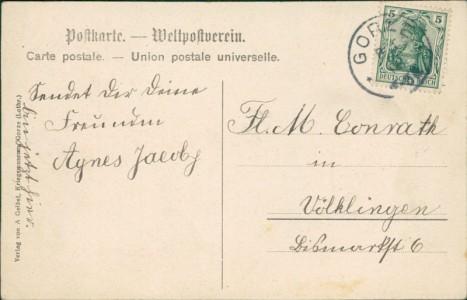 Postkarte. — Weltpostverein.
Carte postale. — Union postale universelle.
5 5
DEUTSCHES REICH
GOR
Sendet Dir Deine
Freundin
Agnes Jacoby
Fl. M. Conrath
in
Völklingen
Bismarkst 6
Verlag von A Geibel, Gorze (Lothr.)